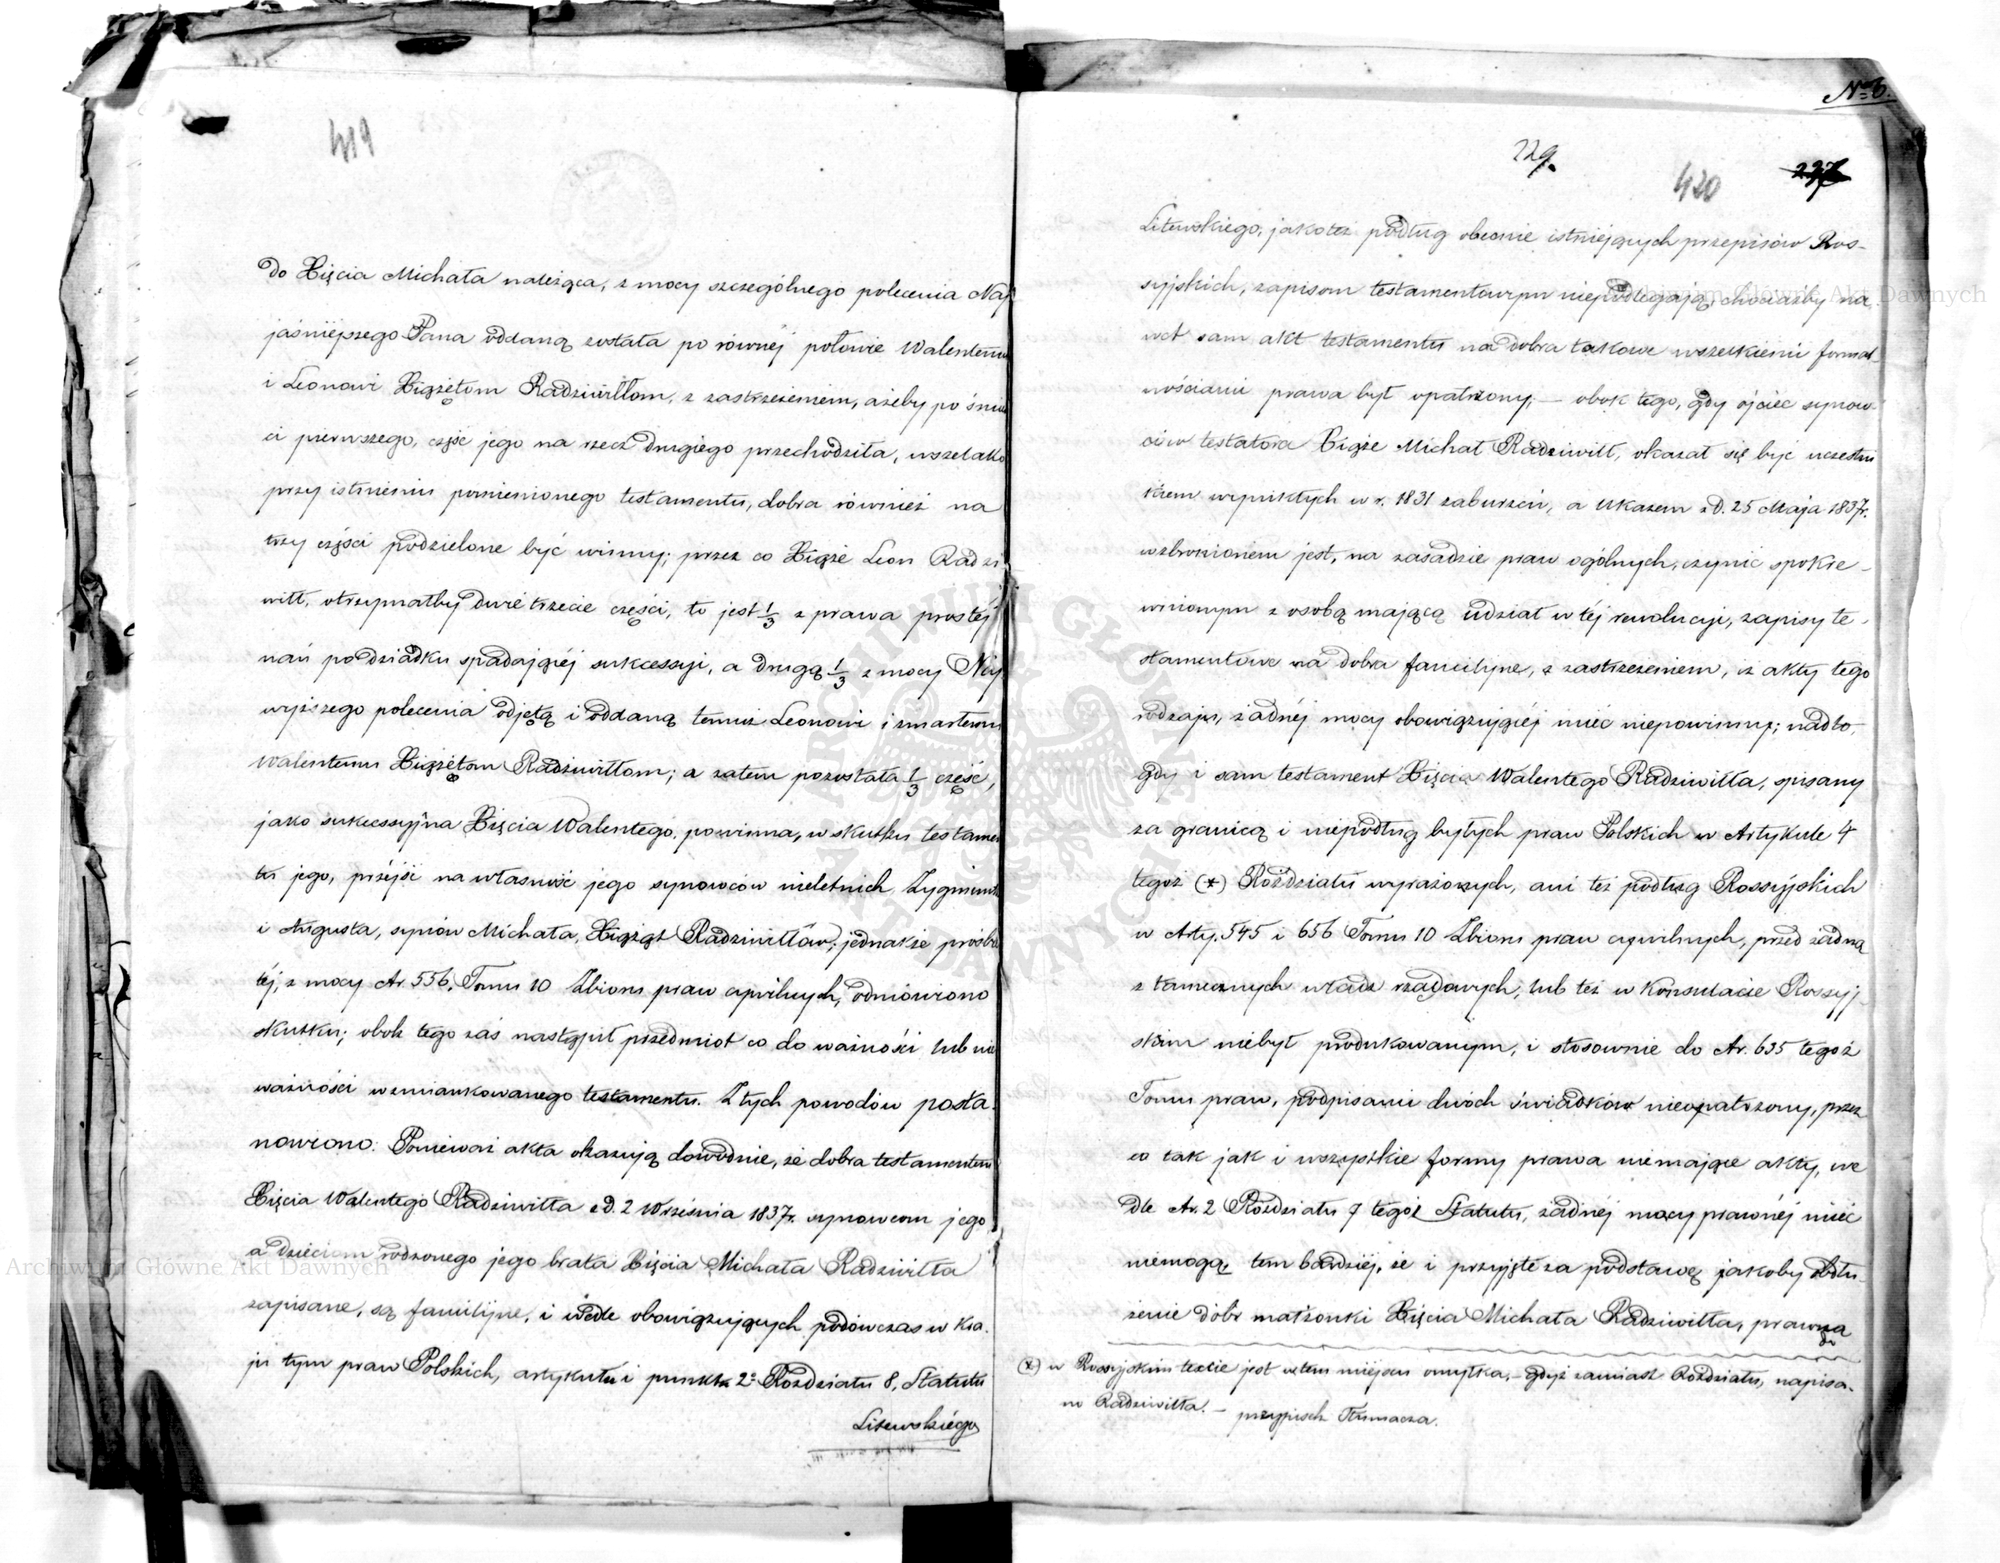 419
do Xięcia Michała należąca, z mocy szczególnego polecenia Naj
jaśniejszego Pana oddaną została po równéj połowie Walentemu
i Leonowi Xiążętom Radziwiłłom, z zastrzeżeniem, ażeby po śmier
ci pierwszego, część jego na rzecz drugiego przechodziła, wszelako
przy istnieniu pomienionego testamentu, dobra również na
trzy części podzielone być winny; przez co Xiąże Leon Radzi
wiłł, otrzymałby dwie trzecie części, to jest 1/3 z prawa prostéj
nań po dziadku spadającéj sukcessyi, a drugą 1/3 z mocy Naj
wyższego polecenia odjętą i oddaną temuż Leonowi i zmarłemu
Walentemu Xiążętom Radziwiłłom; a zatem pozostała 1/3 część,
jako sukcessyjna Xięcia Walentego, powinna, w skutku testamen
tu jego, przéjść na własność jego synowców nieletnich Zygmunta
i Augusta, synów Michała, Xiążąt Radziwiłłów; jednakże prośbie
téj, z mocy Ar. 556, Tomu 10 Zbioru praw cywilnych, odmówiono
skutku; obok tego zaś nastąpił przedmiot co do ważności lub nie
ważności wzmiankowanego testamentu. Z tych powodów posta-
nowiono: Ponieważ akta okazują dowodnie, że dobra testamentem
Xięcia Walentego Radziwiłła z d. 2 Września 1837r. synowcom jego
a dzieciom rodzonego jego brata Xięcia Michała Radziwiłła
zapisane, są familijne, i wedle obowiązujących podówczas w kra-
ju tym praw Polskich, artykułu i punktu 2º Rozdziału 8, Statutu
Litewskiego
Nº 6.
229.
420
237
Litewskiego, jakoteż podług obecnie istniejących przepisów Ros-
syjskich, zapisom testamentowym niepodlegają, chociażby na
wet sam akt testamentu na dobra takowe wszelkiemi formal
nościami prawa był opatrzony; — obok tego, gdy ojciec synow-
ców testatora Xiąże Michał Radziwiłł, okazał się być uczestni
kiem wynikłych w r. 1831 zaburzeń, a Ukazem z d. 25 Maja 1837r.
wzbronionem jest, na zasadzie praw ogólnych, czynić spokre-
wnionym z osobą mającą udział w téj rewolucyi, zapisy te-
stamentowe na dobra familijne, z zastrzeżeniem, iż akty tego
rodzaju, żadnéj mocy obowiązującéj mieć niepowinny; nadto,
gdy i sam testament Xięcia Walentego Radziwiłła, spisany
za granicą i niepodług byłych praw Polskich w Artykule 4
tegoż (*) Rozdziału wyrażonych, ani też podług Rossyjskich
w Arty. 545 i 656 Tomu 10 Zbioru praw cywilnych, przed żadną
z tamecznych władz rządowych, lub też w Konsulacie Rossyj-
skim niebył produkowanym, i stosownie do Ar. 635 tegoż
Tomu praw, podpisami dwóch świadków nieopatrzony, przez
co tak jak i wszystkie formy prawa niemające akty, we
dle Ar. 2 Rozdziału 7 tegoż Statutu, żadnéj mocy prawnéj mieć
niemogą, tem bardziéj, że i przyjęte za podstawę jakoby obdłu-
żenie dóbr małżonki Xięcia Michała Radziwiłła, prawną
(*) w Rossyjskim texcie jest w tem miejscu omyłka, - gdyż zamiast Rozdziału, napisa-
no Radziwiłła. — przypisek Tłumacza.
Archiwum Główne Akt Dawnych
Archiwum Główne Akt Dawnych
ARCHIWUM GŁÓWNE
AKT DAWNYCH